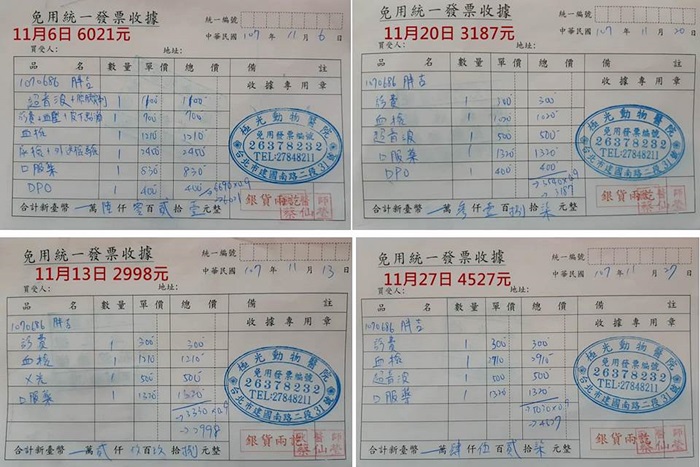 免用統一發票收據
統一編號
11月6日 6021元
中華民國 107 年 11 月 6 日
買受人: 地址:
品 名 數量 單價 總價 備 註
1070686 胖吉 收據專用章
超音波+ 1 1100 1100
診費+血壓+皮下點滴 1 700 700
血檢 1 1210 1210
尿檢+ 1 2450 2450
口服藥 1 830 830
DPO 1 400 400
→6690x0.9
→6021
極光動物醫院
免用發票編號
26378232
TEL:27848211
台北市建國南路二段31號
銀貨兩訖
醫師
蔡仙瑩
合計新臺幣 萬 陸 仟 零 百 貳 拾 壹 元整
免用統一發票收據
統一編號
11月20日 3187元
中華民國 107 年 11 月 20 日
買受人: 地址:
品 名 數量 單價 總價 備 註
1070686 胖吉 收據專用章
診費 1 300 300
血檢 1 1020 1020
超音波 1 500 500
口服藥 1 1320 1320
DPO 400 400
→3540x0.9
→3187
極光動物醫院
免用發票編號
26378232
TEL:27848211
台北市建國南路二段31號
銀貨兩訖
醫師
蔡仙瑩
合計新臺幣 萬 參 仟 壹 百 捌 拾 柒 元整
免用統一發票收據
統一編號
11月13日 2998元
中華民國 107 年 11 月 13 日
買受人: 地址:
品 名 數量 單價 總價 備 註
1070686 胖吉 收據專用章
診費 1 300 300
血檢 1 1210 1210
X光 1 500 500
口服藥 1 1320 1320
→3330x0.9
→2998
極光動物醫院
免用發票編號
26378232
TEL:27848211
台北市建國南路二段31號
銀貨兩訖
醫師
蔡仙瑩
合計新臺幣 萬 貳 仟 玖 百 玖 拾 捌 元整
免用統一發票收據
統一編號
11月27日 4527元
中華民國 107 年 11 月 27 日
買受人: 地址:
品 名 數量 單價 總價 備 註
1070686 胖吉 收據專用章
診費 1 300 300
血檢 1 2910 2910
超音波 1 500 500
口服藥 1 1320 1320
→5030x0.9
→4527
極光動物醫院
免用發票編號
26378232
TEL:27848211
台北市建國南路二段31號
銀貨兩訖
醫師
蔡仙瑩
合計新臺幣 萬 肆 仟 伍 百 貳 拾 柒 元整